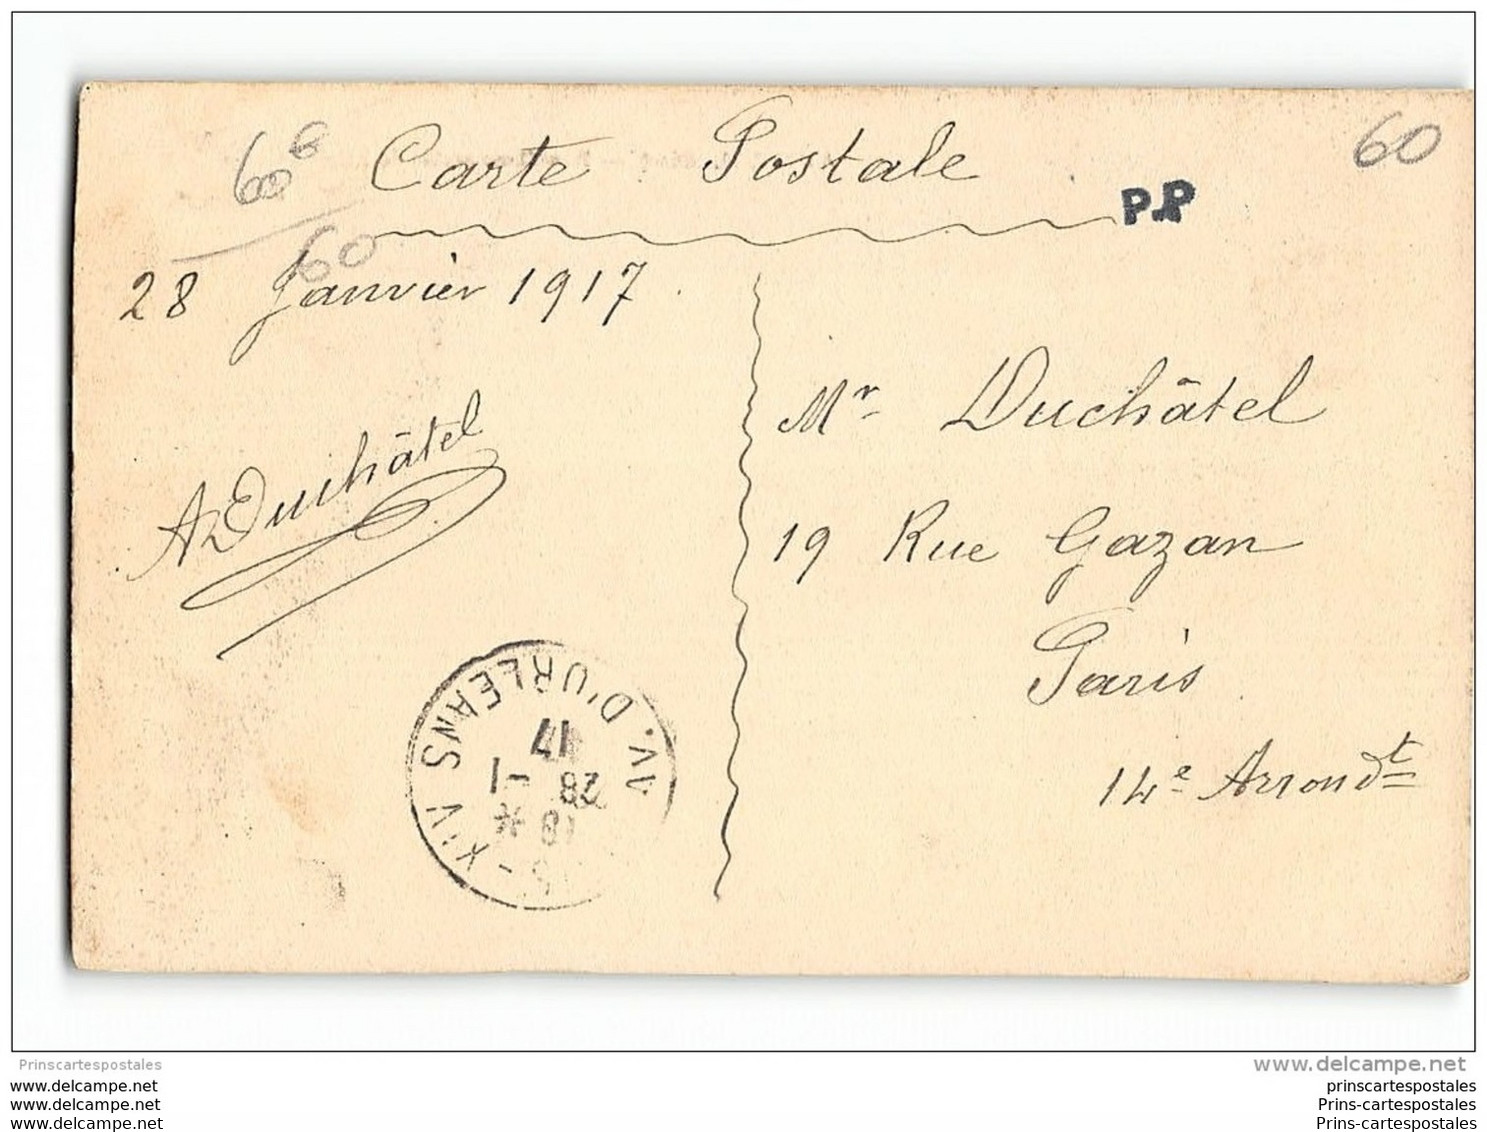 60€
60
Carte Postale
60
P.P
28 Janvier 1917.
Mr Duchâtel
A Duchâtel
19 Rue Gazan
Paris
14e Arrondt
XIV AV. D'ORLEANS
18 *
28 - 1
17
Prinscartespostales
www.delcampe.net
www.delcampe.net
prinscartespostales
www.delcampe.net
Prins-cartespostales
www.delcampe.net
Prins-cartespostales